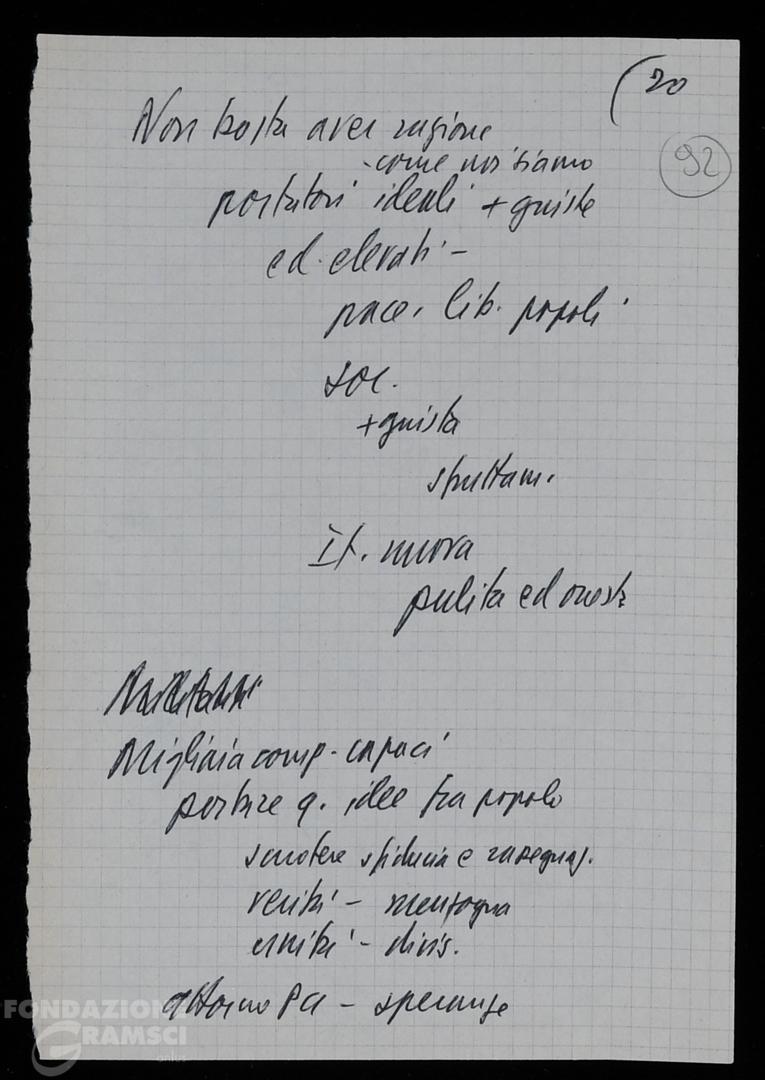 (20
92
Non basta aver ragione
- come noi siamo
portatori ideali + giuste
ed elevati -
pace, lib. popoli
soc.
+ giusta
sfruttam.
It. nuova
pulita ed onesta
Migliaia comp. capaci
portare q. idee fra popolo
scuotere sfiducia e rassegnaz.
verità - menzogna
unità - divis.
attorno PCI - speranze
FONDAZIONE
GRAMSCI
onlus